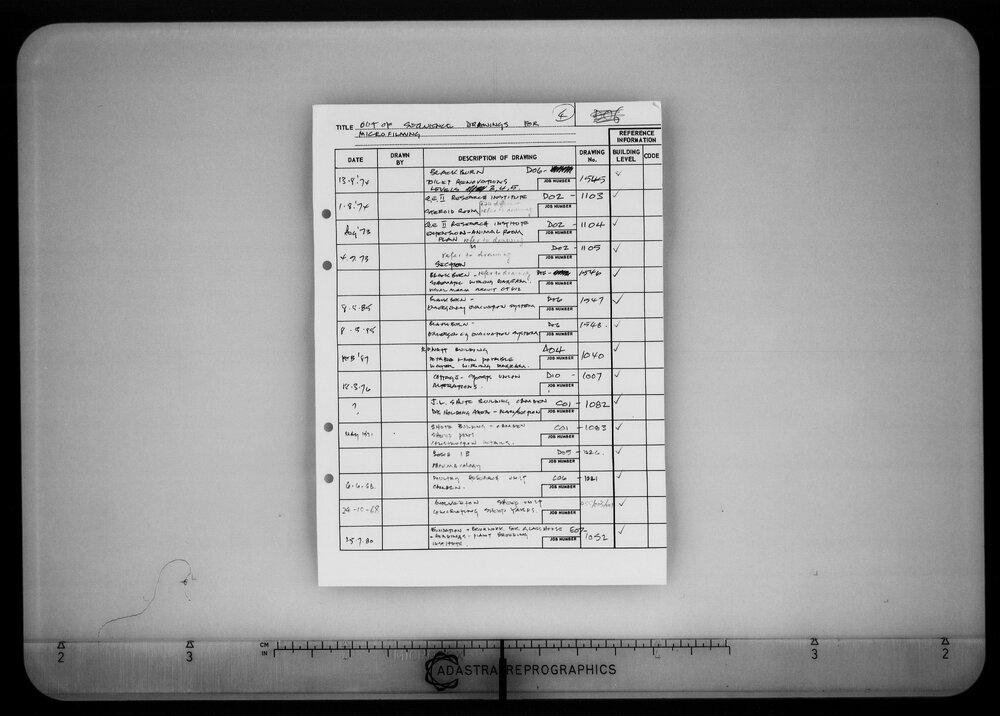 4
TITLE OUT OF SEQUENCE DRAWINGS FOR
MICROFILMING
REFERENCE
INFORMATION
DATE DRAWN BY DESCRIPTION OF DRAWING DRAWING No. BUILDING LEVEL CODE
BLACKBURN D06-
13.8.'74 TOILET RENOVATIONS JOB NUMBER 1545 ✓
LEVELS 3,4,5.
Q.E. II RESEARCH INSTITUTE D02 - 1103 ✓
1.8.'74 STEROID ROOM refer to drawing JOB NUMBER
Q.E. II RESEARCH INSTITUTE D02 - 1104 ✓
Aug '73 EXTENSION-ANIMAL ROOM JOB NUMBER
PLAN refer to drawing
D02 - 1105 ✓
4.7.73 refer to drawing JOB NUMBER
SECTION
BLACKBURN - refer to drawing D06 - 1546 ✓
SCHEMATIC WIRING DIAGRAM. JOB NUMBER
BLACKBURN - D06 1547 ✓
8.5.85 EMERGENCY EVACUATION SYSTEM JOB NUMBER
BLACKBURN - D06 1548 ✓
8.5.85 EMERGENCY EVACUATION SYSTEM JOB NUMBER
BUILDING A04 1040 ✓
FEB '87 JOB NUMBER
WATER WIRING DIAGRAM.
COTTAGE - SPORTS UNION D10 - 1007 ✓
12.3.76 ALTERATIONS. JOB NUMBER
? J.L. SHUTE BUILDING CAMDEN C01 - 1082 ✓
JOB NUMBER
SHUTE BUILDING - CAMDEN C01 - 1083 ✓
MAY 1971 JOB NUMBER
CONSTRUCTION DETAILS.
BOSCH 1B D05 - 1226. ✓
PHARMACOLOGY JOB NUMBER
POULTRY RESEARCH UNIT C06 - 1021 ✓
CAMDEN. JOB NUMBER
24-10-68 SHEEP UNIT ✓
SHEEP YARDS. JOB NUMBER
ELEVATION + BRICKWORK FOR GLASSHOUSE ✓
25.7.80 - PLANT BREEDING JOB NUMBER 1052
INSTITUTE.
CM
IN
2 3 3 2
ADASTRA REPROGRAPHICS